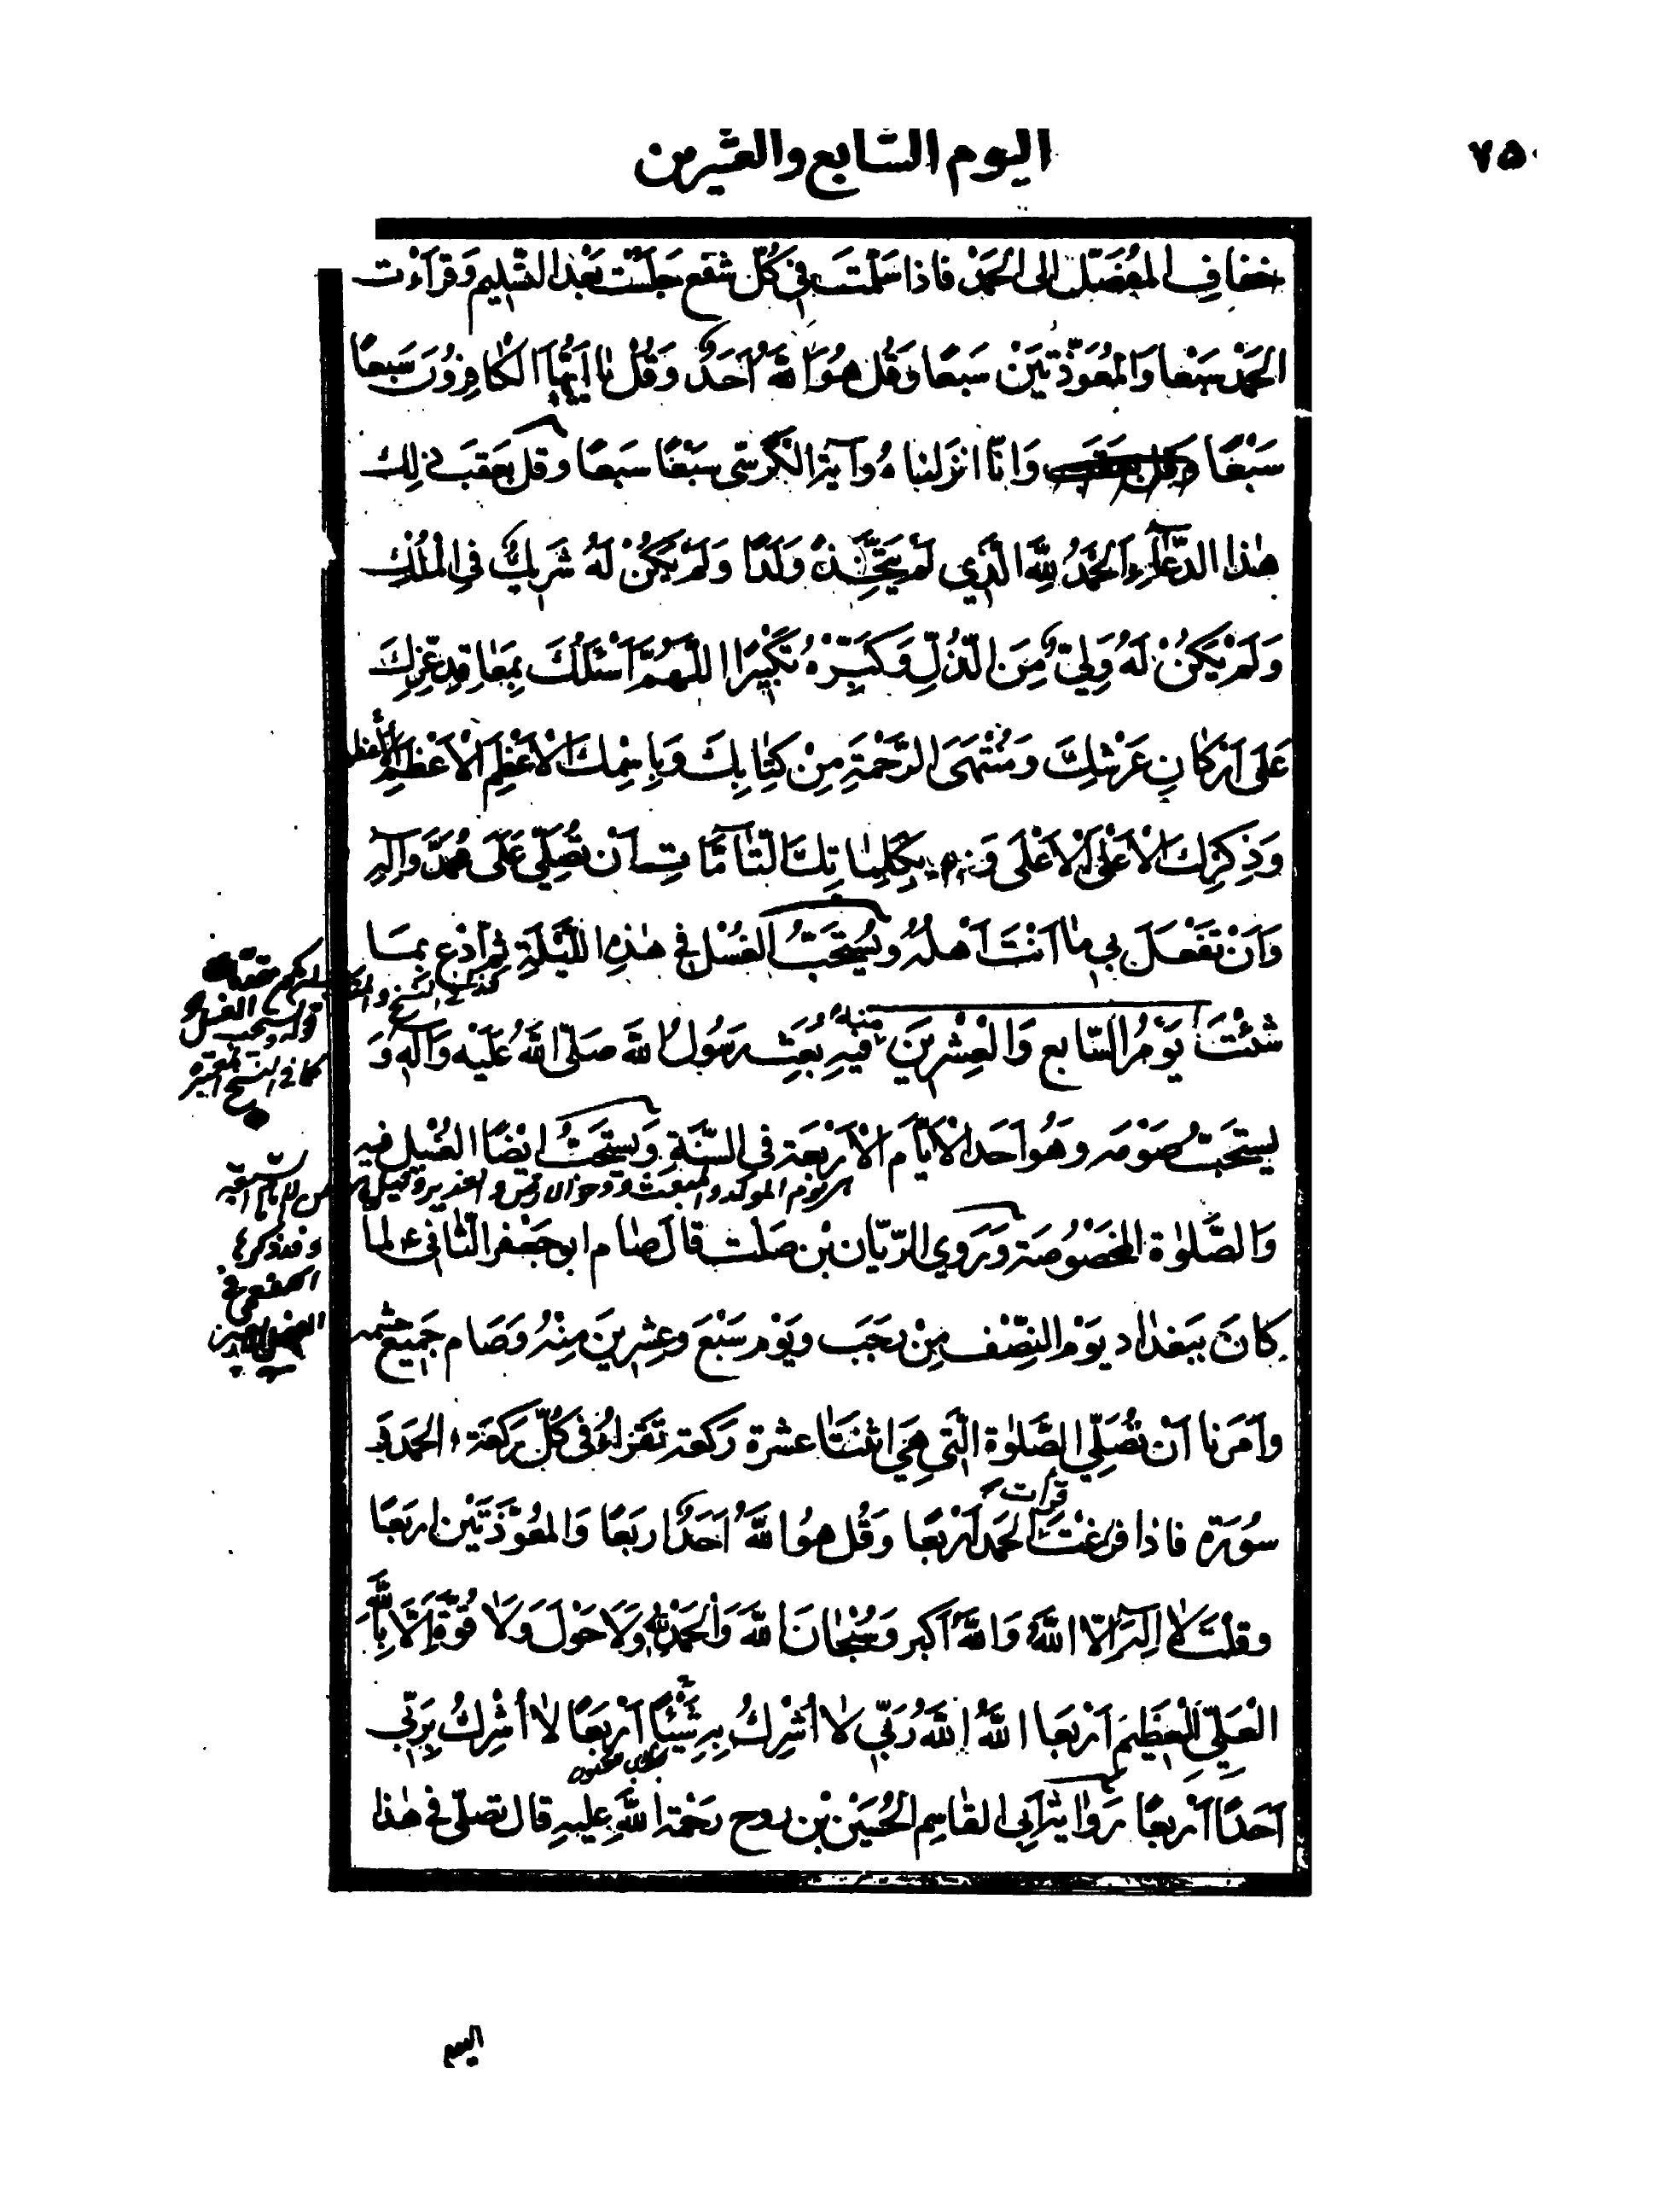 ٧٥٠
اليوم السّابع والعشرمن
خفاف المفصّل الى الحمد فاذا سلّمت في كلّ شفع جلست بعد التسليم وقرأت
الحمد سبعا والمعوّذتين سبعا وقل هو الله احد وقل يا ايّها الكافرون سبعا
سبعًا وانّا انزلناه وآية الكرسي سبعًا سبعا وقل بعقب ذلك
هذا الدّعاء الحمد لله الّذي لم يتّخذ ولدا ولم يكن له شريك في الملك
ولم يكن له وليّ من الذّلّ وكبّره تكبيرا اللّهمّ اسئلك بمعاقد عزّك
على اركان عرشك ومنتهى الرّحمة من كتابك وباسمك الاعظم الاعظم الاعظم
وذكرك الاعلى الاعلى و بكلماتك التّامّات ان تصلّي على محمّد وآله
وان تفعل بي ما انت اهله ويستحبّ الغسل في هذه اللّيلة ثم ادع بما
شئت يوم السّابع والعشرين منه فيه بعث رسول الله صلّى الله عليه وآله و
يستحبّ صومه وهو احد الايّام الاربعة في السّنة ويستحبّ ايضًا الغسل فيه
والصّلوة المخصوصة وروي الريّان بن صلت قال صام ابو جعفر الثّاني ع لما
كان ببغداد يوم النّصف من رجب ويوم سبع وعشرين منه وصام جميع حشمه
وامرنا ان نصلّي الصّلوة الّتي هي اثنتا عشرة ركعة تقرأ في كلّ ركعة الحمد و
سورة فاذا فرغت قرأت الحمد اربعا وقل هو الله احد اربعا والمعوّذتين اربعا
وقلت لا اله الّا الله والله اكبر وسبحان الله والحمد لله ولا حول ولا قوّة الّا بالله
العليّ العظيم اربعا الله الله ربّي لا اشرك به شيئا اربعا لا اشرك بربّي
احدًا اربعًا رواية ابي القاسم الحسين بن روح رحمة الله عليه قال تصلّي في هذا
اليوم